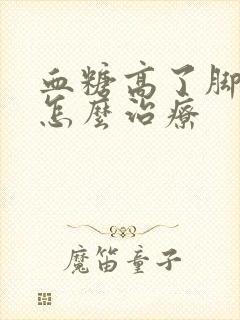 血糖高了脚
怎麼治療
魔笛童子